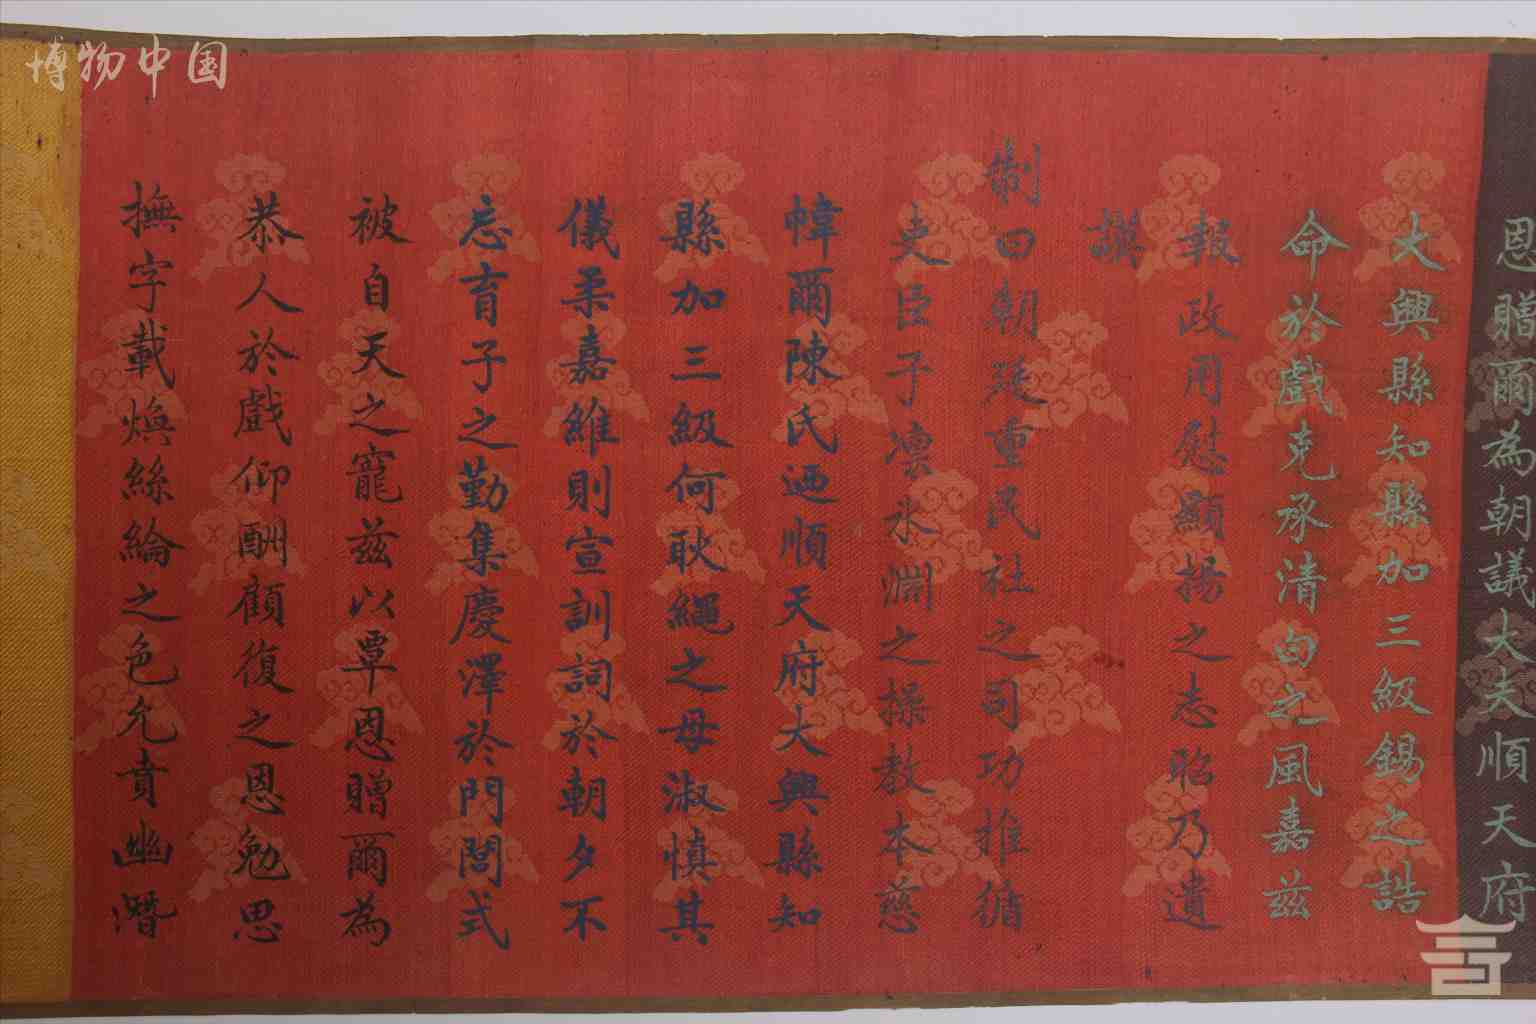 恩贈爾為朝議大夫順天府
大興縣知縣加三級錫之誥
命於戲克承清白之風嘉茲
報政用慰顯揚之志昭乃遺
謨
制曰朝廷重民社之司功推循
吏臣子凜氷淵之操教本慈
幃爾陳氏迺順天府大興縣知
縣加三級何耿繩之母淑慎其
儀柔嘉維則宣訓詞於朝夕不
忘育子之勤集慶澤於門閭式
被自天之寵茲以覃恩贈爾為
恭人於戲仰酬顧復之恩勉思
撫字載煥絲綸之色允賁幽潛
博物中国